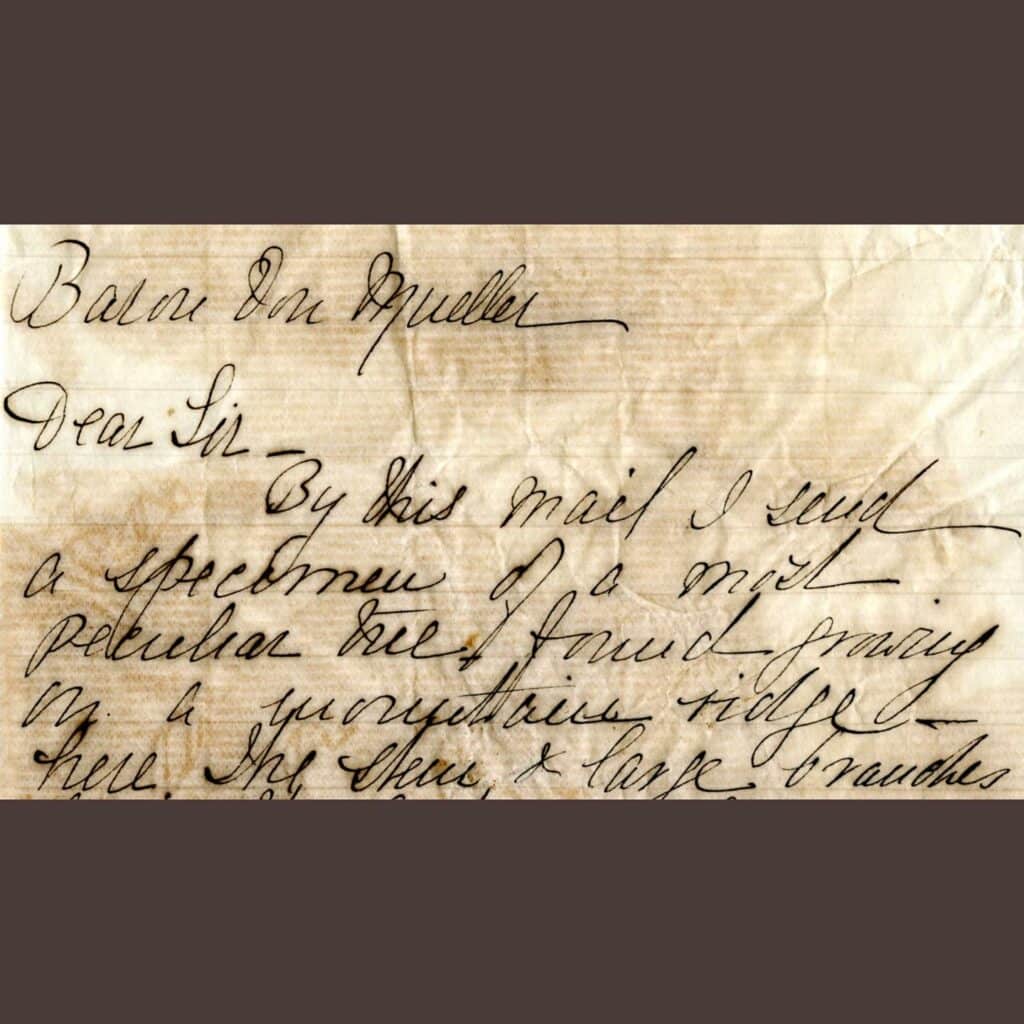 Baron Von Mueller
Dear Sir –
By this mail I send
a specimen of a most
peculiar tree, found growing
on a mountain ridge –
here. The stem, & large branches